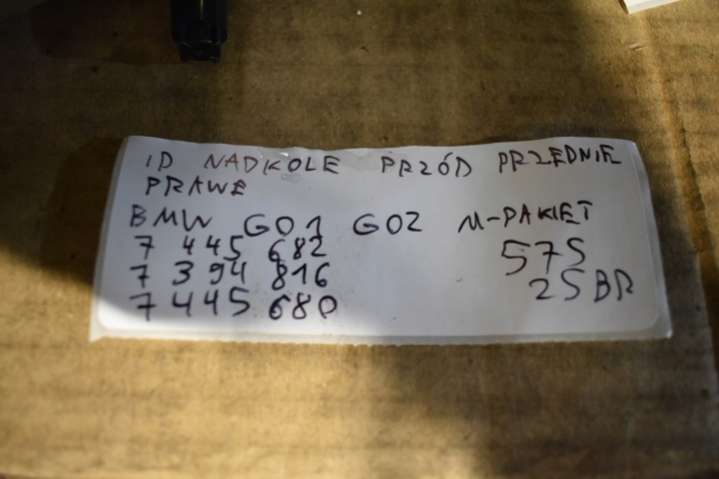 ID NADKOLE PRZÓD PRZEDNIE
PRAWE
BMW G01 G02 M-PAKIET
7 445 682 575
7 394 816 25BR
7 445 680